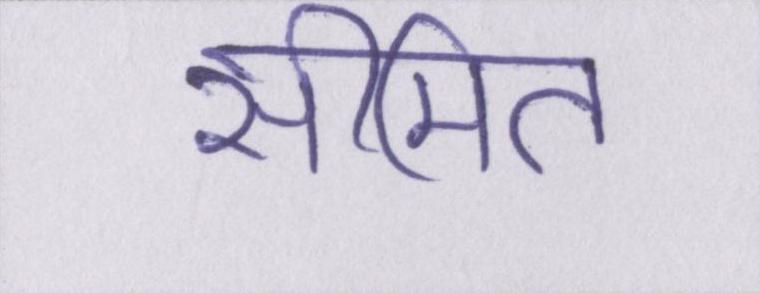 सीमित